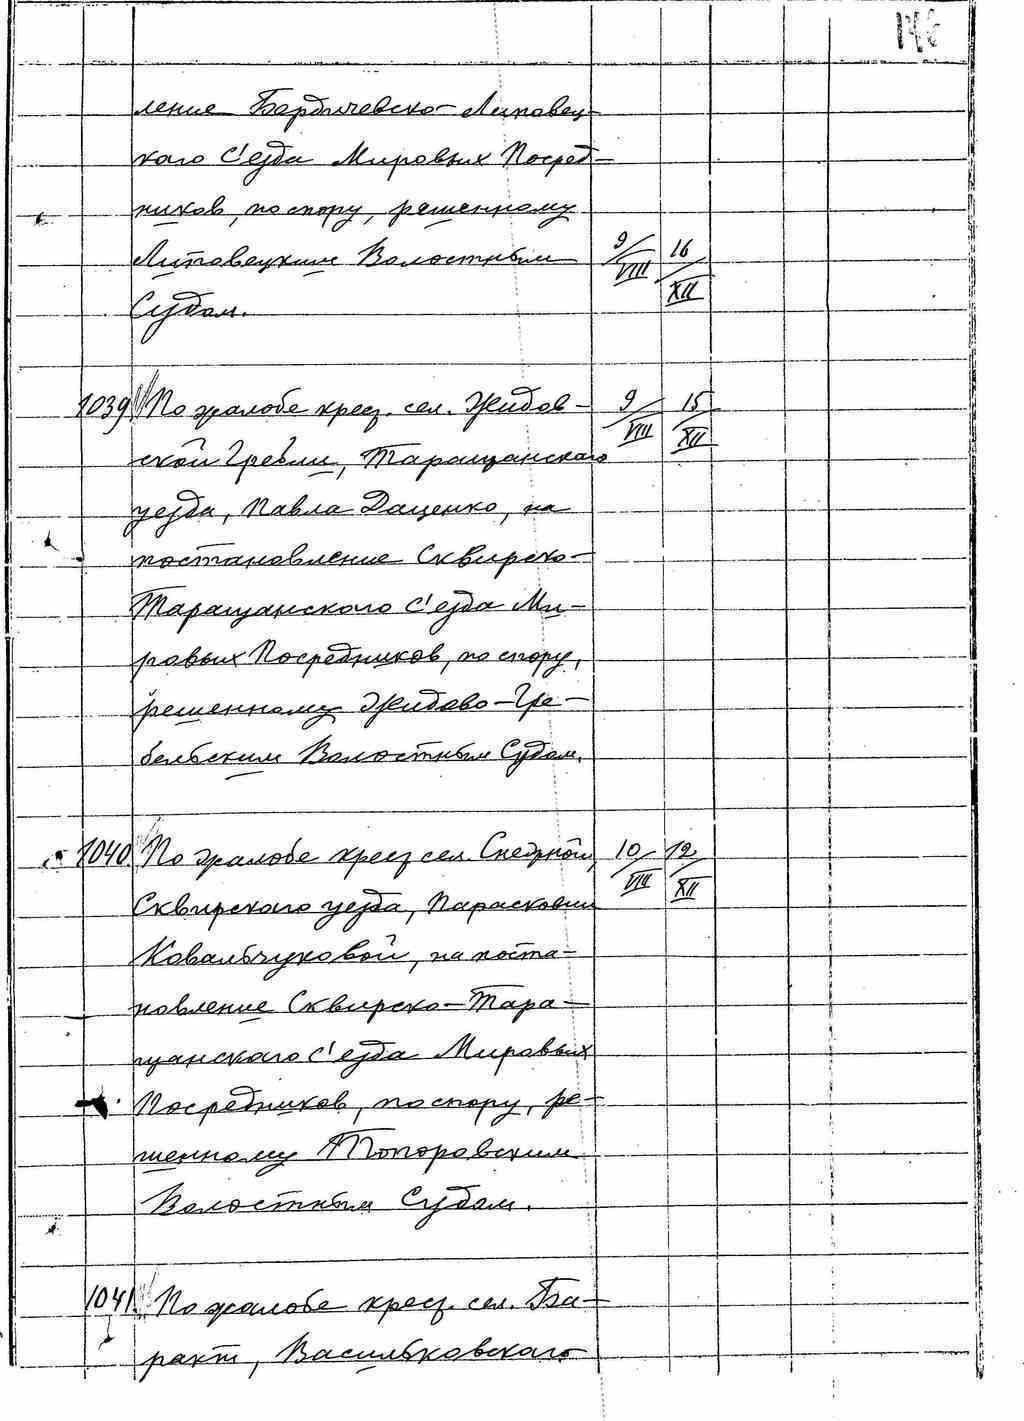 ление Бердичевско-Липовец-
кого С'езда Мировых Посред-
ников, по спору, решенному
Липовецким Волостным
Судом.
9/VIII 16/XII
1039 По жалобе крест. сел. Жидов-
ской Гребли, Таращанского
уезда, Павла Даценко, на
постановление Сквирско-
Таращанского С'езда Ми-
ровых Посредников, по спору,
решенному Жидово-Гре-
бельским Волостным Судом.
9/VIII 15/XII
1040 По жалобе крест. сел. Снежной,
Сквирского уезда, Парасковии
Ковальчуковой, на поста-
новление Сквирско-Тара-
щанского С'езда Мировых
Посредников, по спору, ре-
шенному Топоровским
Волостным Судом.
10/VIII 12/XII
1041. По жалобе крест. сел. Ба-
ракт, Васильковского